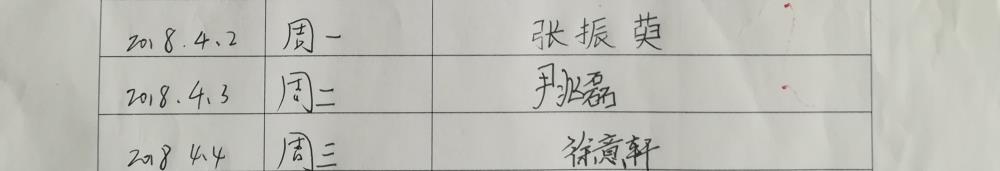 2018.4.2 周一 张振萸
2018.4.3 周二 尹兆磊
2018 4.4 周三 徐意轩